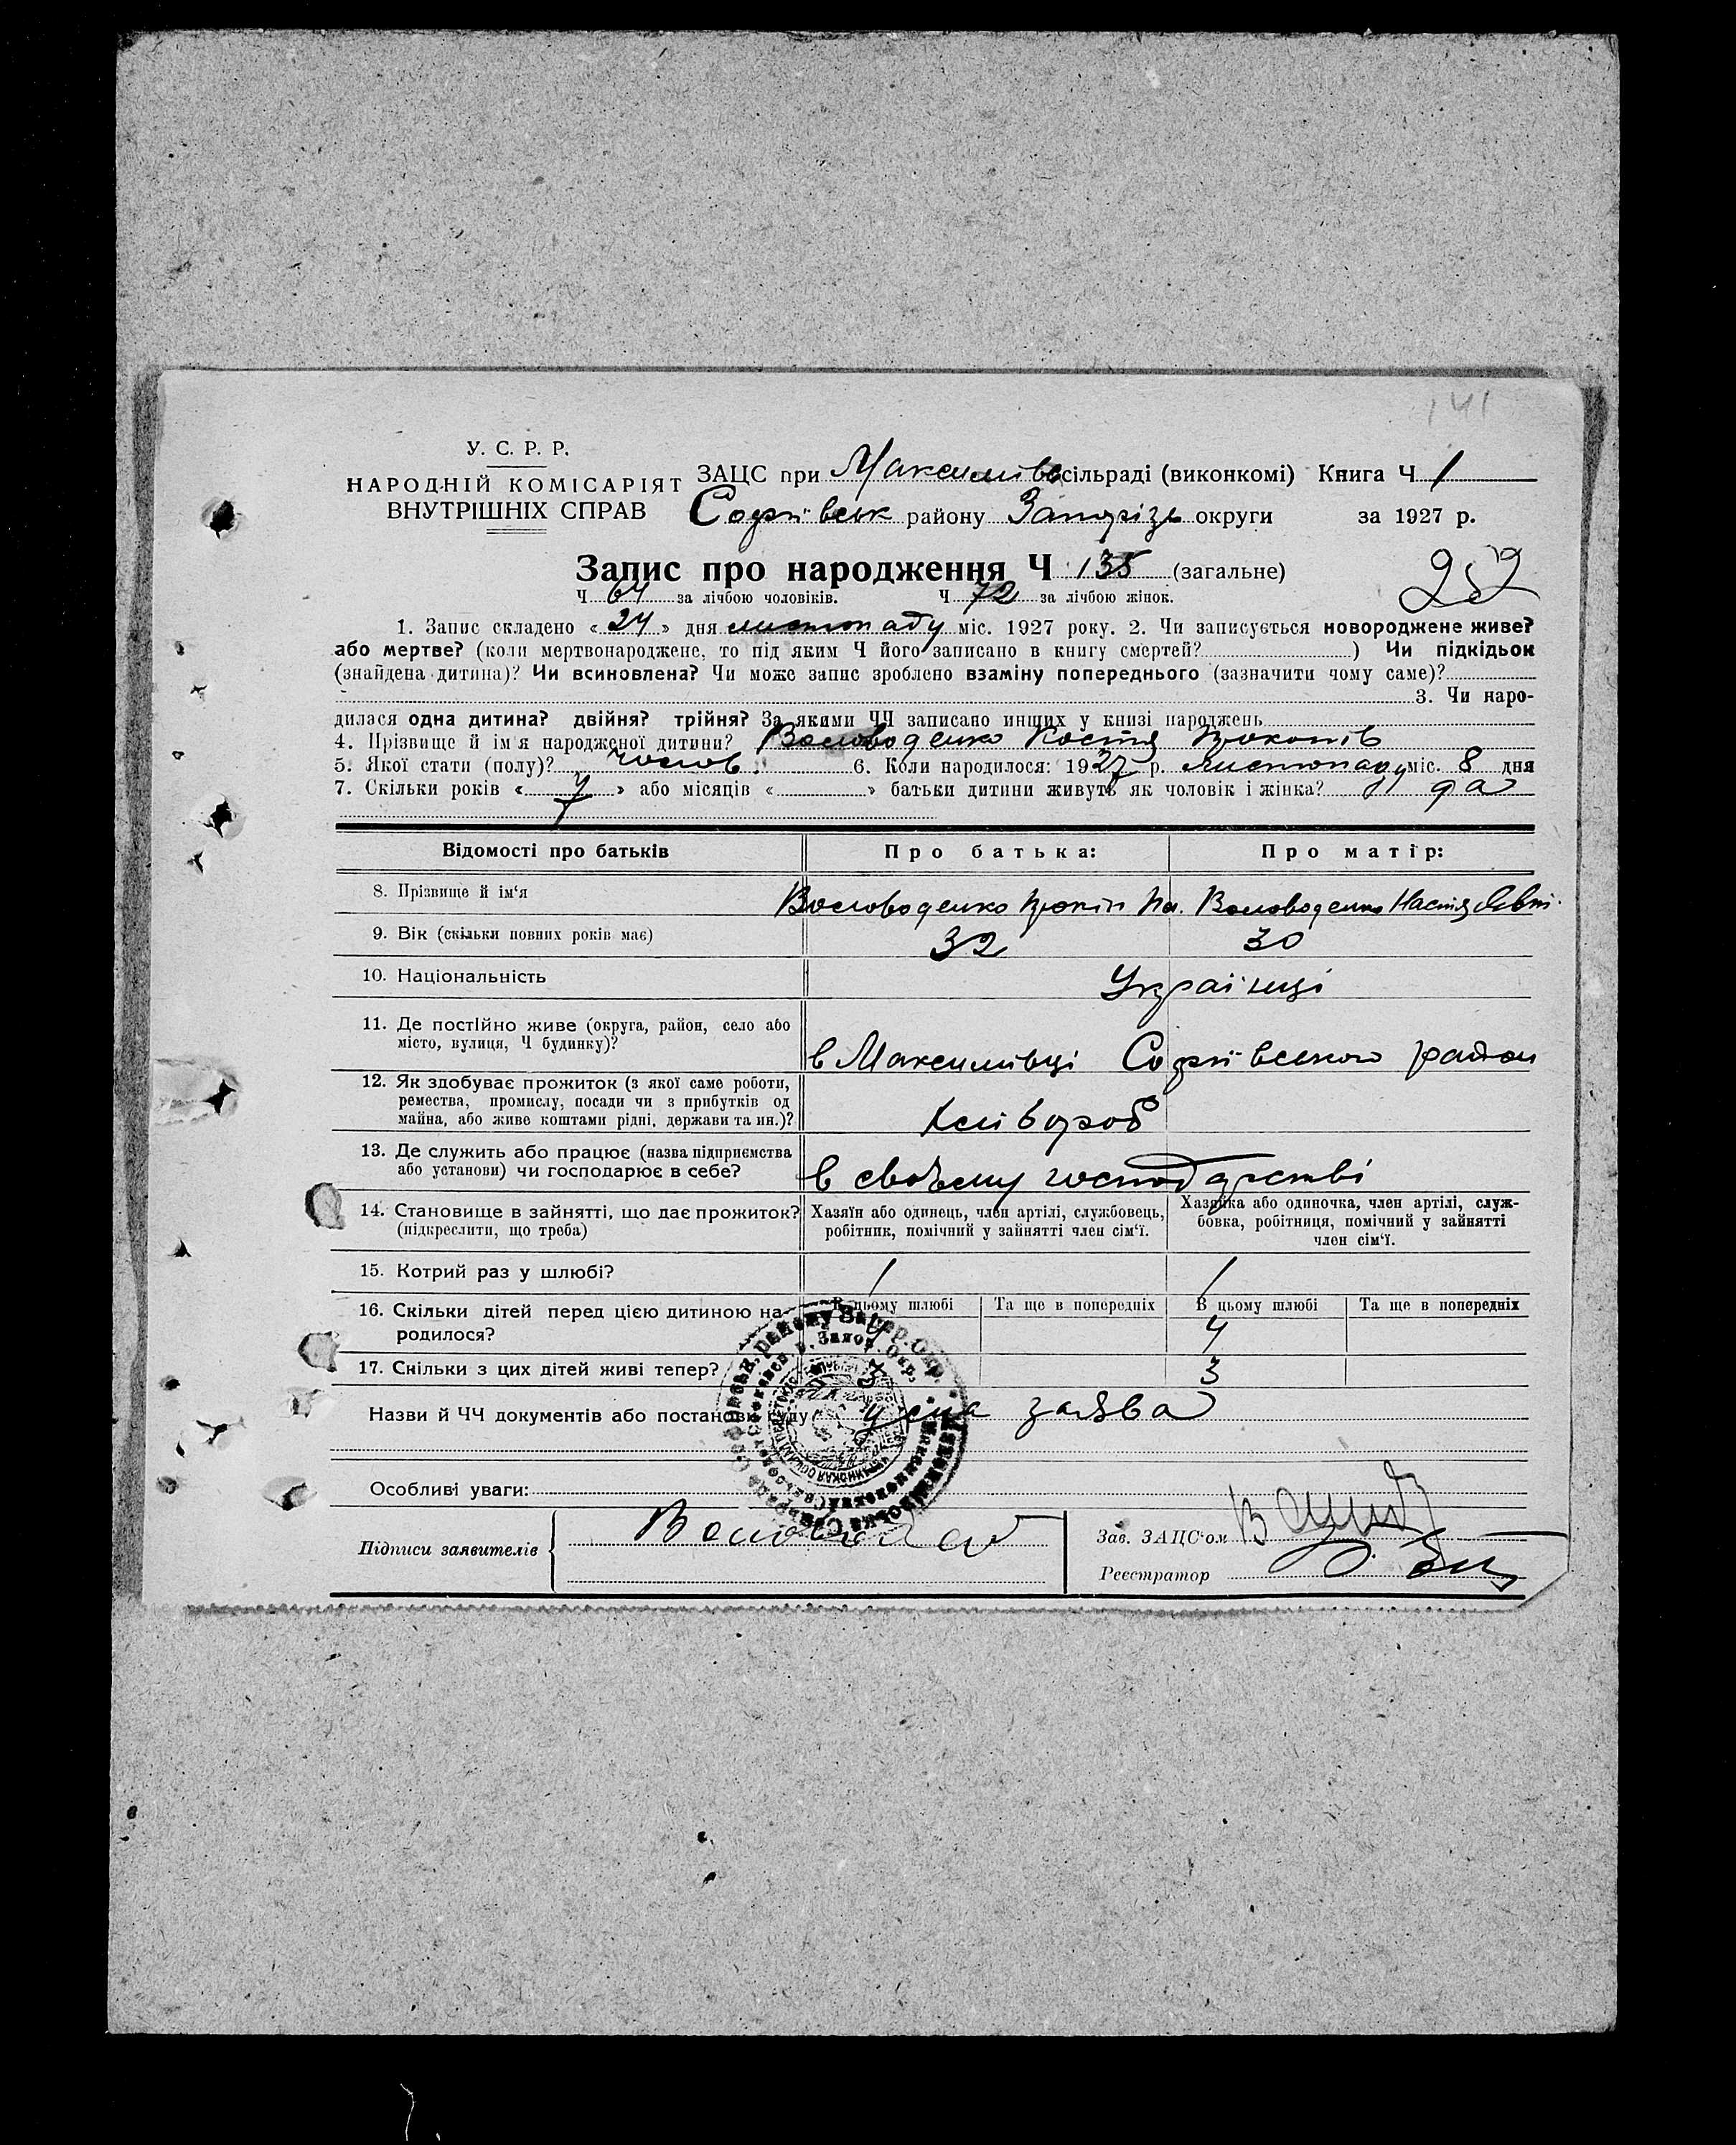 141
У. С. Р. Р.
НАРОДНІЙ КОМІСАРІЯТ
ВНУТРІШНІХ СПРАВ
ЗАЦС при Максимівс сільраді (виконкомі) Книга Ч 1
Софіївськ району Запоріз округи за 1927 р.
Запис про народження Ч 135 (загальне)
252
Ч 64 за лічбою чоловіків. Ч 72 за лічбою жінок.
1. Запис складено « 24 » дня листопаду міс. 1927 року. 2. Чи записується новороджене живе?
або мертве? (коли мертвонароджене, то під яким Ч його записано в книгу смертей? ) Чи підкідьок
(знайдена дитина)? Чи всиновлена? Чи може запис зроблено взаміну попереднього (зазначити чому саме)?
3. Чи наро-
дилася одна дитина? двійня? трійня? За якими ЧЧ записано инших у книзі народжень
4. Прізвище й ім'я народженої дитини? Воловоденко Костя Прокопів
5. Якої стати (полу)? чолов. 6. Коли народилося: 1927 р. листопаду міс. 8 дня
7. Скільки років « 7 » або місяців « » батьки дитини живуть як чоловік і жінка? да
Відомості про батьків Про батька: Про матір:
8. Прізвище й ім'я Воловоденко Прокіп Па. Воловоденко Настя Явт.
9. Вік (скільки повних років має) 32 30
10. Національність Українці
11. Де постійно живе (округа, район, село або
місто, вулиця, Ч будинку)? в Максимівці Софіївського район
12. Як здобуває прожиток (з якої саме роботи,
ремества, промислу, посади чи з прибутків од
майна, або живе коштами рідні, держави та ин.)? хлібороб
13. Де служить або працює (назва підприємства
або установи) чи господарює в себе? в своъму господарстві
14. Становище в зайнятті, що дає прожиток? Хазяїн або одинець, член артілі, службовець, Хазяйка або одиночка, член артілі, служ-
(підкреслити, що треба) робітник, помічний у зайнятті член сім'ї. бовка, робітниця, помічний у зайнятті
член сім'ї.
15. Котрий раз у шлюбі? 1 1
16. Скільки дітей перед цією дитиною на- В цьому шлюбі Та ще в попередніх В цьому шлюбі Та ще в попередніх
родилося? 4 4
17. Скільки з цих дітей живі тепер? 3 3
Назви й ЧЧ документів або постанови суду усна заява
Особливі уваги:
Підписи заявителів
Зав. ЗАЦС'ом
Реєстратор